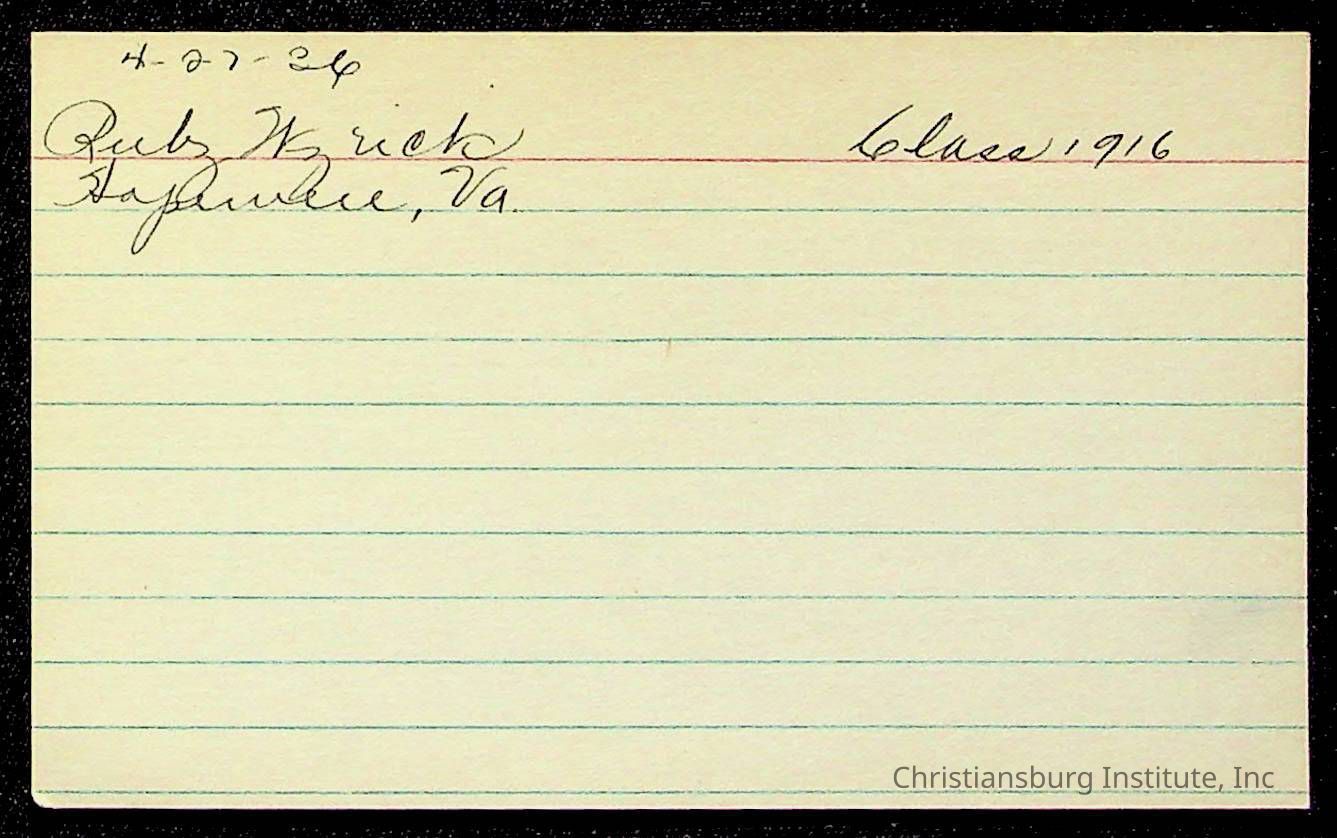 4-27-36
Ruby Wyrick Class 1916
Hopewell, Va.
Christiansburg Institute, Inc